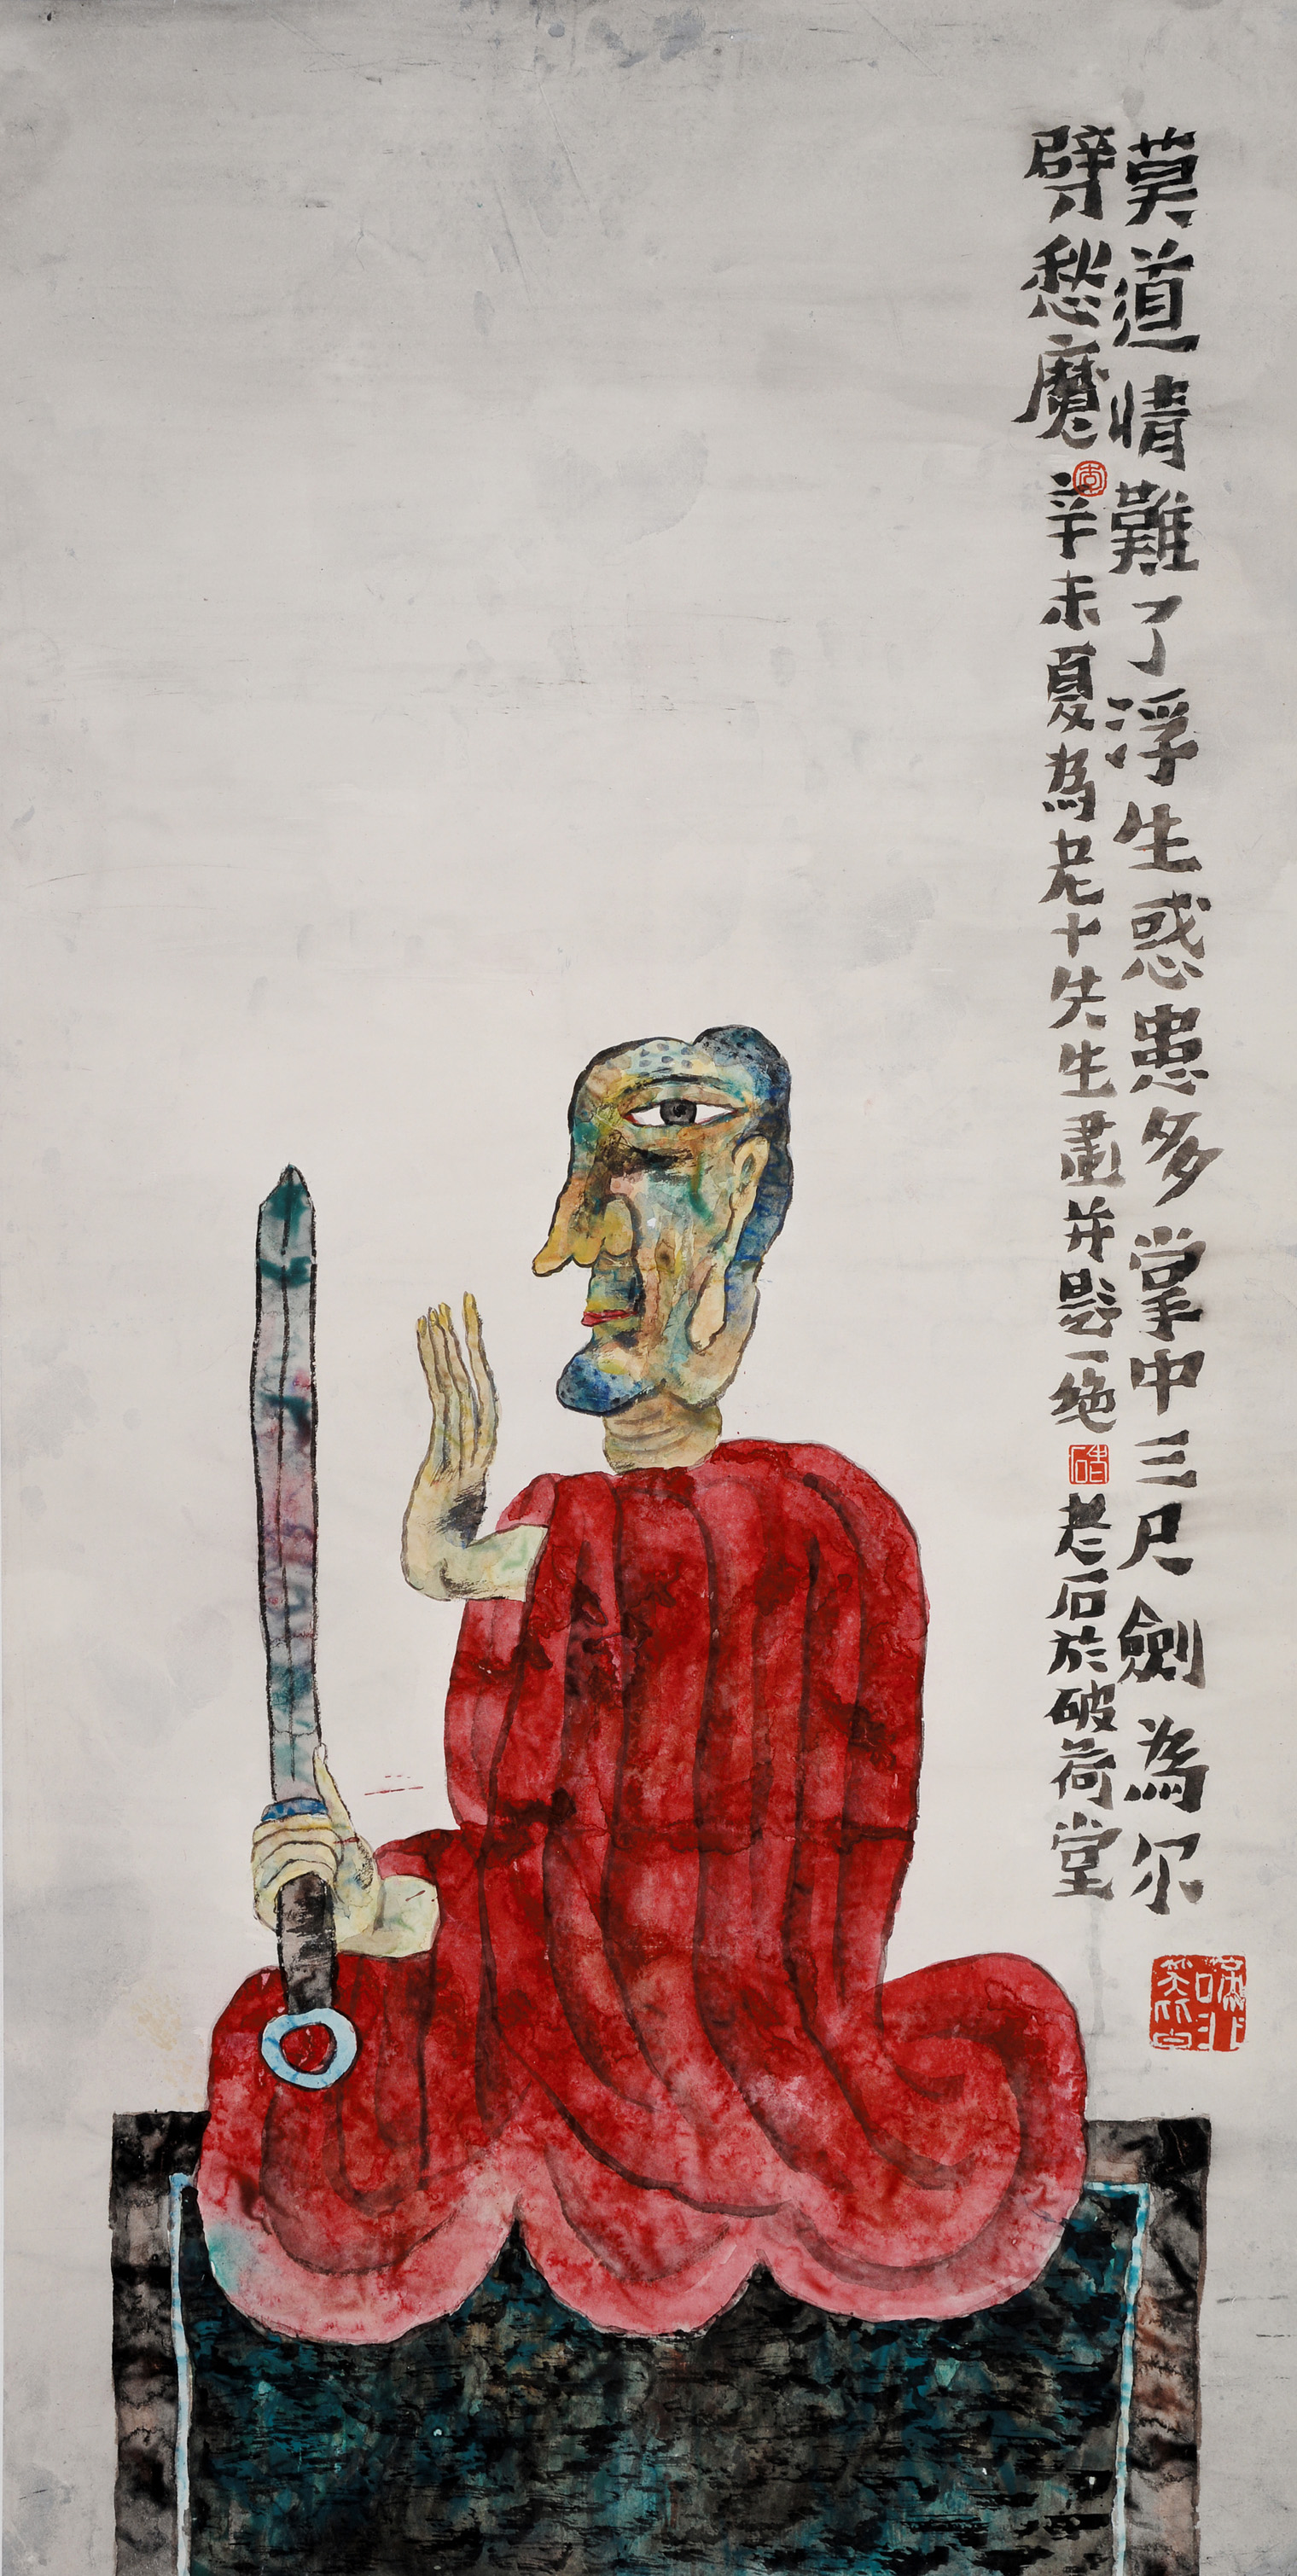 莫道情難了浮生惑患多掌中三尺劍為尔
劈愁魔 辛未夏為老十先生畫并題一絶 老石於破荷堂